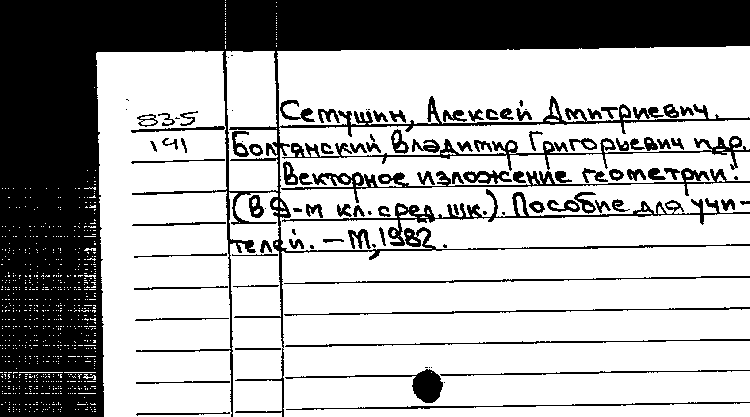 83-5 Семушин, Алексей Дмитриевич.
141 Болтянский, Владимир Григорьевич и др.
Векторное изложение геометрии:
(В 9-м кл. сред. шк.). Пособие для учи-
телей. — М, 1982.